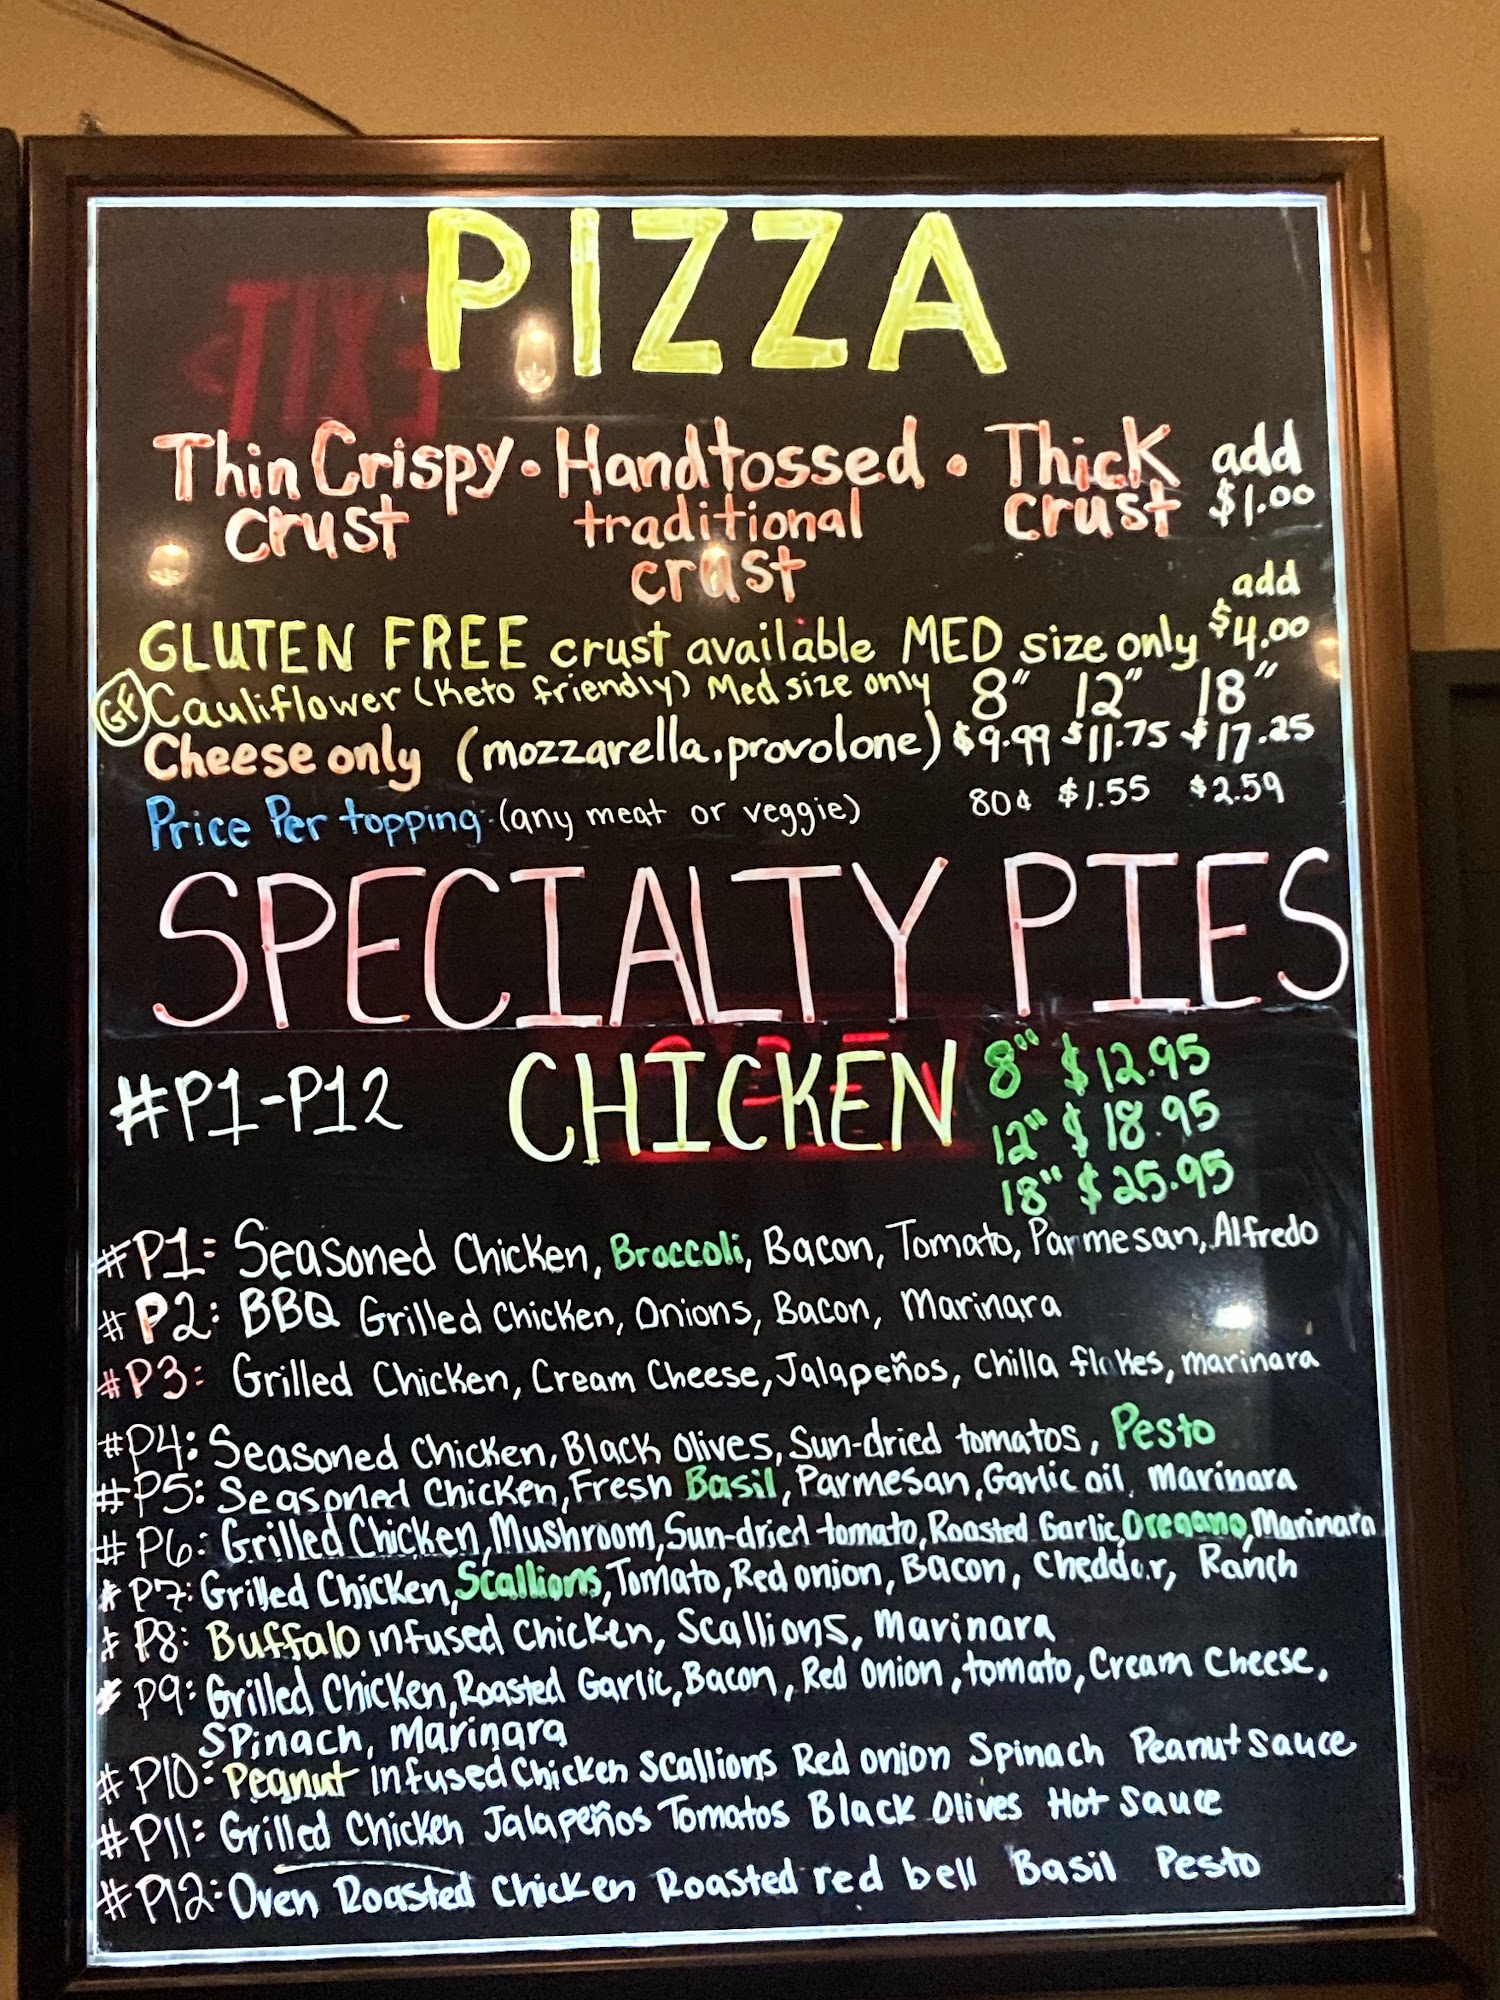 PIZZA
Thin Crispy • Handtossed • Thick add
crust traditional crust $1.00
crust
add
GLUTEN FREE crust available MED size only $4.00
GF Cauliflower (Keto friendly) Med size only 8" 12" 18"
Cheese only (mozzarella, provolone) $9.99 $11.75 $17.25
Price Per topping: (any meat or veggie) 80¢ $1.55 $2.59
SPECIALTY PIES
#P1-P12 CHICKEN 8" $12.95
12" $18.95
18" $25.95
#P1: Seasoned Chicken, Broccoli, Bacon, Tomato, Parmesan, Alfredo
#P2: BBQ Grilled Chicken, Onions, Bacon, Marinara
#P3: Grilled Chicken, Cream Cheese, Jalapeños, Chilla flakes, marinara
#P4: Seasoned Chicken, Black Olives, Sun-dried tomatos, Pesto
#P5: Seasoned Chicken, Fresh Basil, Parmesan, Garlic oil, Marinara
#P6: Grilled Chicken, Mushroom, Sun-dried tomato, Roasted Garlic, Oregano, Marinara
#P7: Grilled Chicken, Scallions, Tomato, Red onion, Bacon, Cheddar, Ranch
#P8: Buffalo infused Chicken, Scallions, Marinara
#P9: Grilled Chicken, Roasted Garlic, Bacon, Red Onion, tomato, Cream Cheese,
Spinach, Marinara
#P10: Peanut infused Chicken Scallions Red onion Spinach Peanut Sauce
#P11: Grilled Chicken Jalapeños Tomatos Black Olives Hot Sauce
#P12: Oven Roasted Chicken Roasted red bell Basil Pesto
EXIT